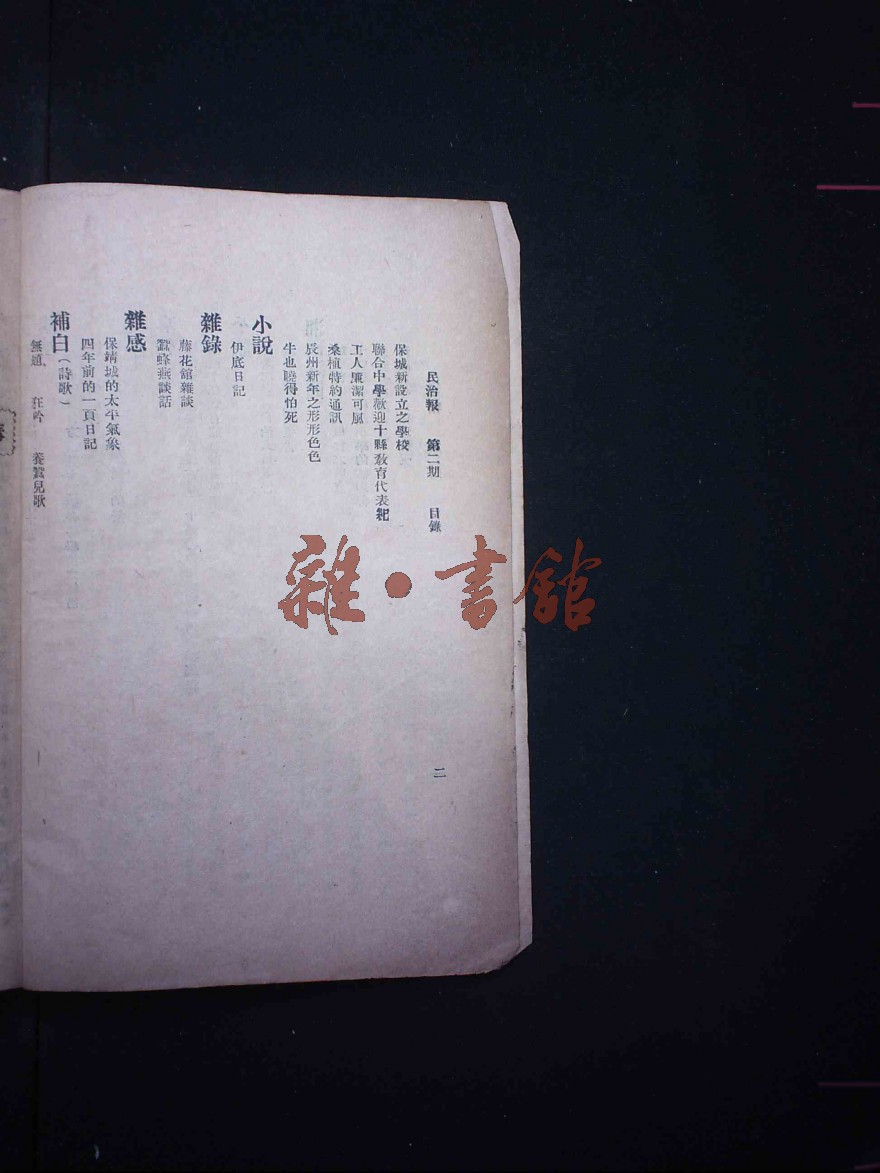 民治報 第二期 目錄
保城新設立之學校
聯合中學歡迎十縣教育代表紀
工人廉潔可風
桑植特約通訊
辰州新年之形形色色
牛也曉得怕死
小說
伊底日記
雜錄
藤花館雜談
蠶蜂燕談話
雜感
保靖城的太平氣象
四年前的一頁日記
補白(詩歌)
無題、 狂吟 養蠶兒歌
二
雜·書館